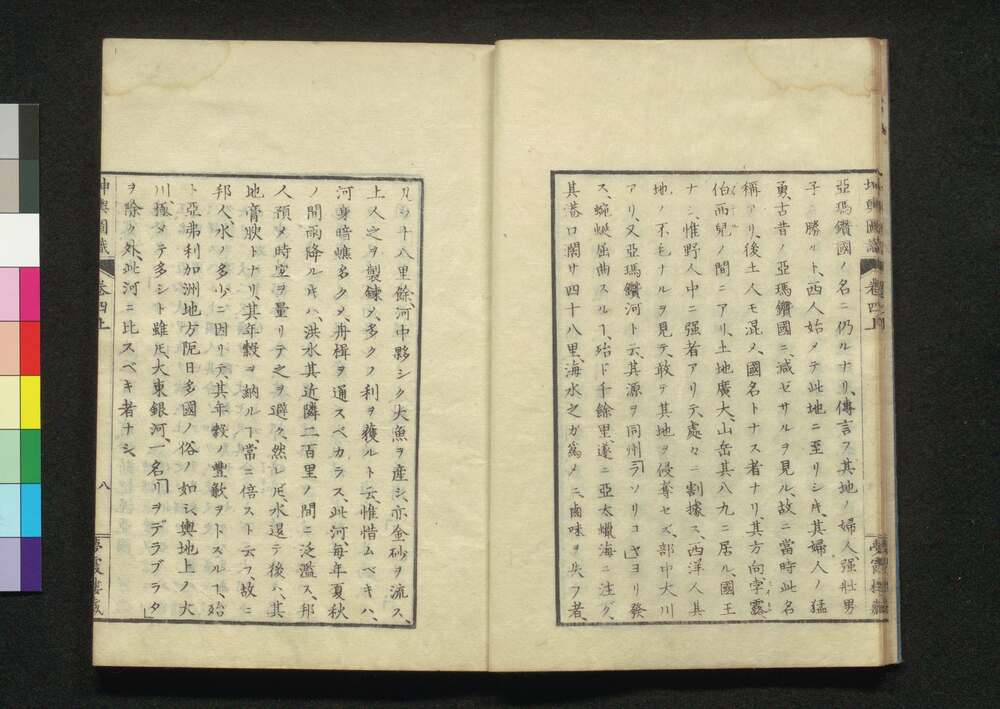 坤輿圖識 卷四上 夢霞樓藏
亞瑪鑽國ノ名ニ仍ルナリ、傳言フ其地ノ婦人、强壯男
子ニ勝ルト、西人始メテ此地ニ至リシ時、其婦人ノ猛
勇、古昔ノ亞瑪鑽國ニ減ゼサルヲ見ル、故ニ當時此名
稱アリ、後土人モ混メ、國名トナス者ナリ、其方向孛露
伯西兒ノ間ニアリ、土地廣大、山岳其八九ニ居ル、國王
ナシ、惟野人中ニ强者アリテ、處々ニ割據ス、西洋人其
地ノ不毛ナルヲ見テ、敢テ其地ヲ侵奪セズ、部中大川
アリ、又亞瑪鑽河ト云、其源ヲ同州「ラソリコ」ヨリ發
ス、蜿蜒屈曲スルヿ、殆ド千餘里、遂ニ亞太蠟海ニ注グ、
其港口闊サ四十八里、海水之ガ爲メニ、鹵味ヲ失フ者、
凡ソ十八里餘、河中夥シク大魚ヲ産シ、亦金砂ヲ流ス、
土人之ヲ製錬メ、多クノ利ヲ獲ルト云、惟惜ムベキハ、
河身暗礁多クメ、舟楫ヲ通スベカラス、此河、毎年夏秋
ノ間雨降ル時ハ、洪水其近隣二百里ノ間ニ泛濫ス、邦
人預メ時宜ヲ量リテ之ヲ避ク、然レ𪜈、水退テ後ハ、其
地膏腴トナリ、其年穀ヲ納ルヿ、常ニ倍スト云フ、故ニ
邦人、水ノ多少ニ因リテ其年穀ノ豐歉ヲトスルヿ、殆
ト亞弗利加洲地方阨日多國ノ俗ノ如シ、輿地上ノ大
川、極メテ多シト雖𪜈、大東銀河、一名「リヲデラプラタ」
ヲ除クノ外、此河ニ比スベキ者ナシ、
坤輿圖識 卷四上 八 夢霞樓藏